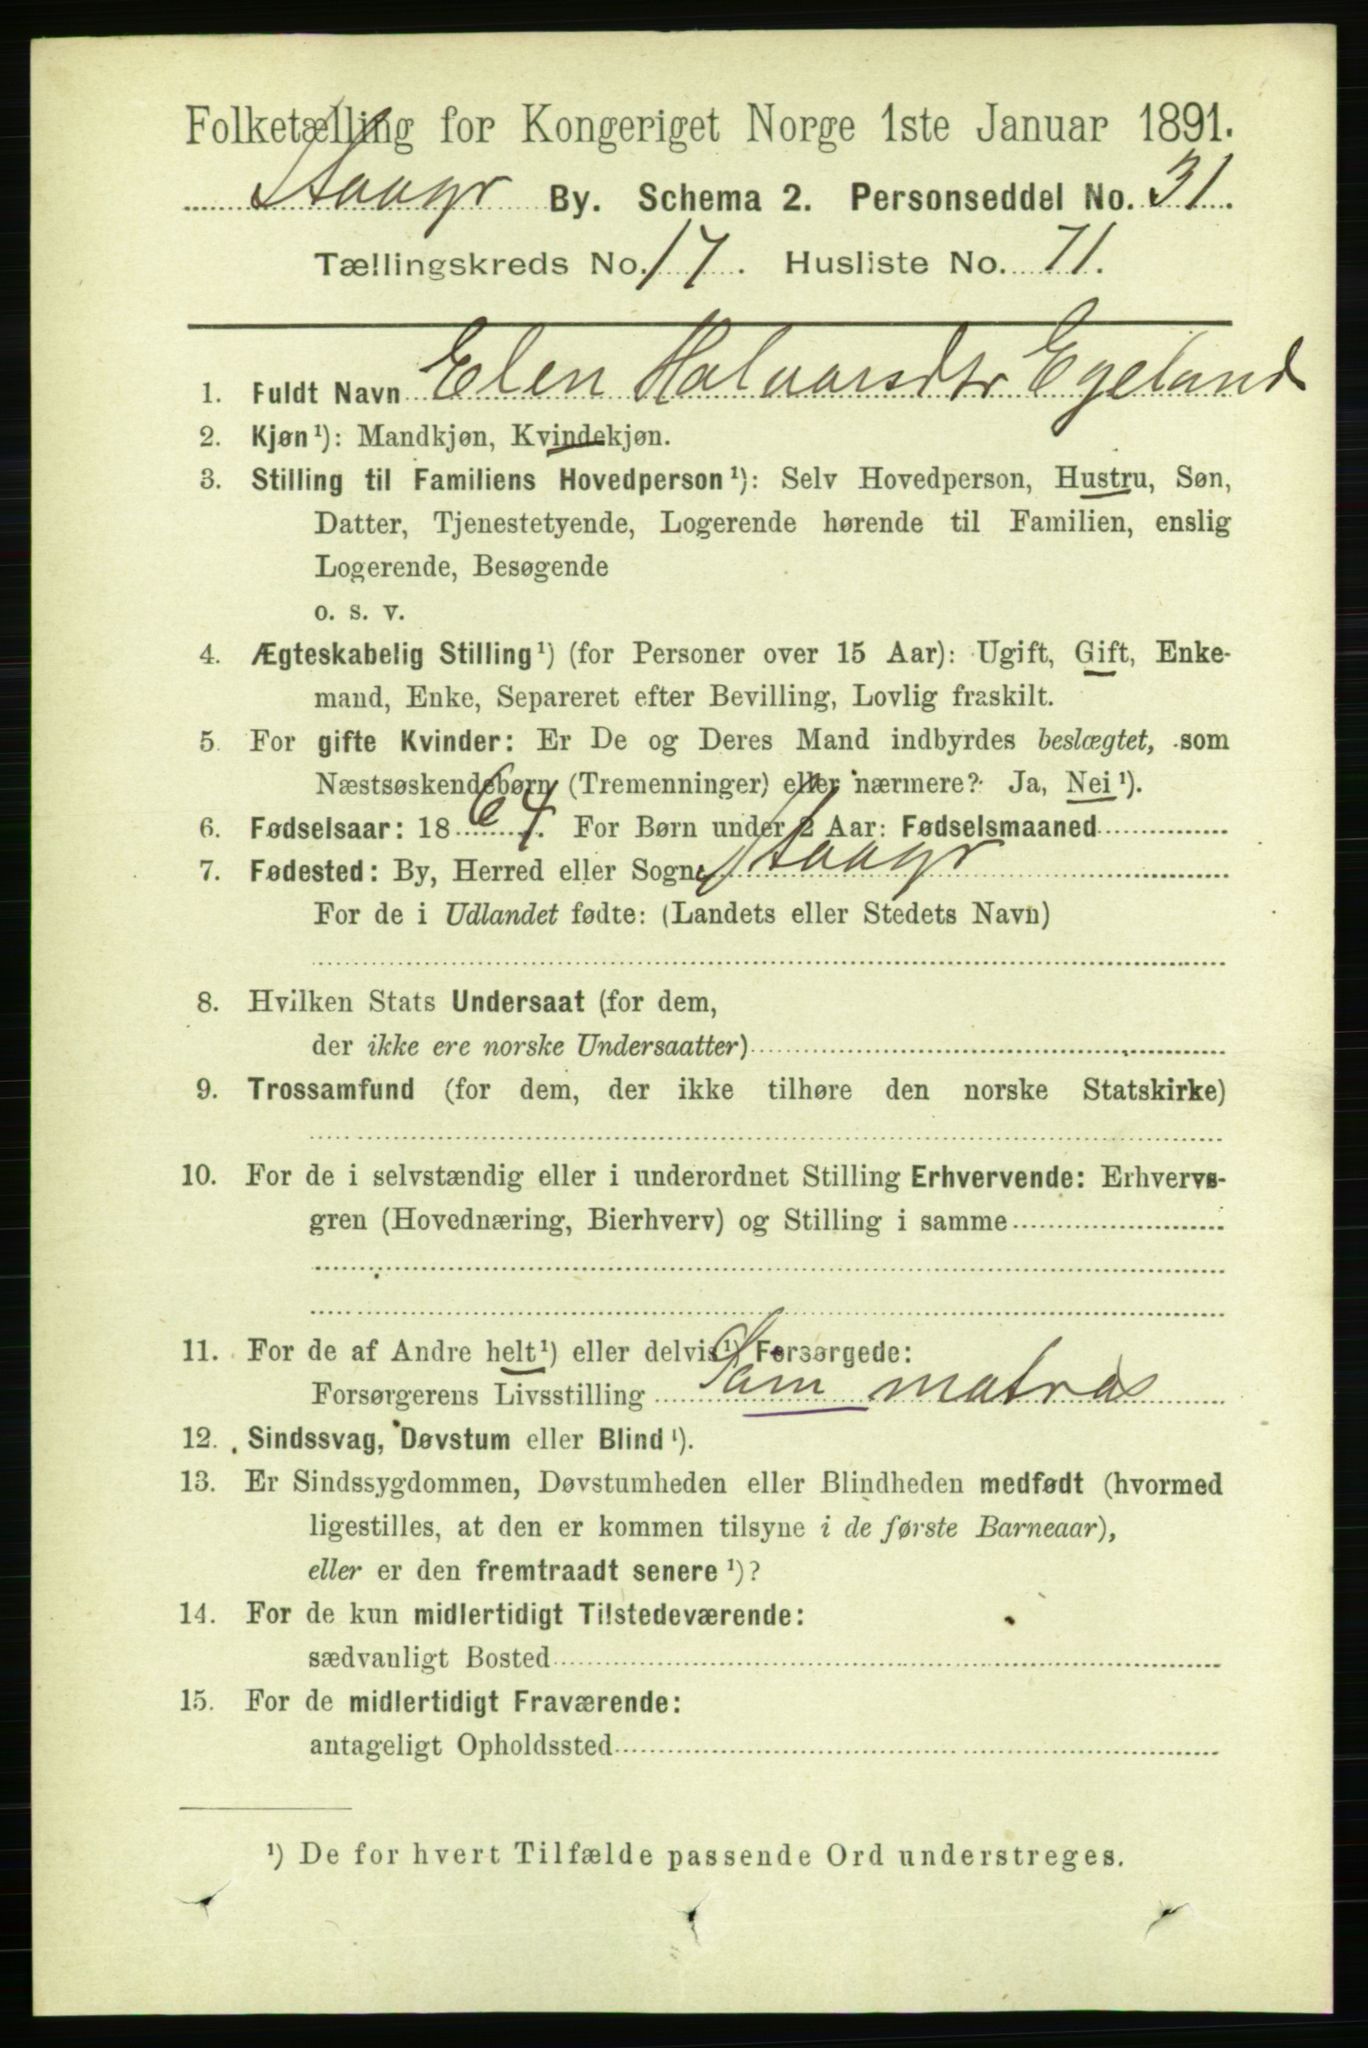 Folketælling for Kongeriget Norge 1ste Januar 1891.
Stavgr By. Schema 2. Personseddel No. 31.
Tællingskreds No. 17. Husliste No. 71.
1. Fuldt Navn Elen Halvarsdtr Egeland
2. Kjøn¹): Mandkjøn, Kvindekjøn.
3. Stilling til Familiens Hovedperson¹): Selv Hovedperson, Hustru, Søn,
Datter, Tjenestetyende, Logerende hørende til Familien, enslig
Logerende, Besøgende
o. s. v.
4. Ægteskabelig Stilling¹) (for Personer over 15 Aar): Ugift, Gift, Enke-
mand, Enke, Separeret efter Bevilling, Lovlig fraskilt.
5. For gifte Kvinder: Er De og Deres Mand indbyrdes beslægtet, som
Næstsøskendebørn (Tremenninger) eller nærmere? Ja, Nei¹).
6. Fødselsaar: 1864. For Børn under 2 Aar: Fødselsmaaned
7. Fødested: By, Herred eller Sogn Stavgr
For de i Udlandet fødte: (Landets eller Stedets Navn)
8. Hvilken Stats Undersaat (for dem,
der ikke ere norske Undersaatter)
9. Trossamfund (for dem, der ikke tilhøre den norske Statskirke)
10. For de i selvstændig eller i underordnet Stilling Erhvervende: Erhvervs-
gren (Hovednæring, Bierhverv) og Stilling i samme
11. For de af Andre helt¹) eller delvis¹) Forsørgede:
Forsørgerens Livsstilling Søm matros
12. Sindssvag, Døvstum eller Blind¹).
13. Er Sindssygdommen, Døvstumheden eller Blindheden medfødt (hvormed
ligestilles, at den er kommen tilsyne i de første Barneaar),
eller er den fremtraadt senere¹)?
14. For de kun midlertidigt Tilstedeværende:
sædvanligt Bosted
15. For de midlertidigt Fraværende:
antageligt Opholdssted
¹) De for hvert Tilfælde passende Ord understreges.